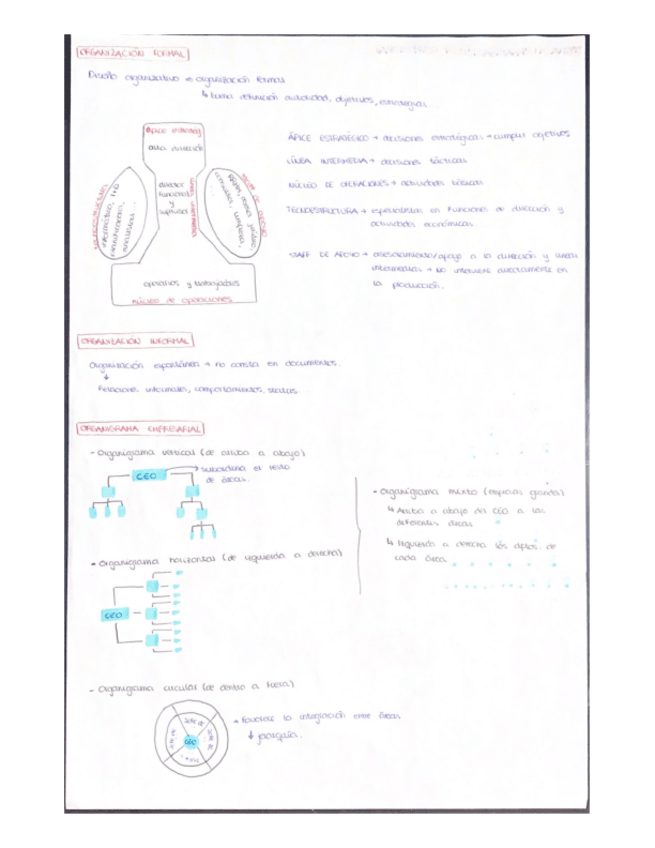 ORGANIZACIÓN FORMAL
Diseño organizativo organización formas
↳ buena definición autoridad, objetivos, estrategias
Ápice estrateg
alta dirección
director
funcional
y
supervisor
LÍNEA INTERMEDIA
TECNOESTRUCTURA
informática, I+D
planificadores,
analistas...
STAFF DE APOYO
RRPP, asesor jurídico,
consultas, limpieza,
operarios y trabajadores
núcleo de operaciones
ÁPICE ESTRATÉGICO → decisiones estratégicas → cumplir objetivos
LÍNEA INTERMEDIA → decisiones tácticas
NÚCLEO DE OPERACIONES → actividades básicas
TECNOESTRUCTURA → especialistas en funciones de dirección y
actividades económicas.
STAFF DE APOYO → asesoramiento/apoyo a la dirección y líneas
intermedias → NO interviene directamente en
la producción.
ORGANIZACIÓN INFORMAL
Organización espontánea → no consta en documentos.
↓
Relaciones informales, comportamientos, status.
ORGANIGRAMA EMPRESARIAL
- Organigrama vertical (de arriba a abajo)
CEO
→ subordina el resto
de áreas.
- Organigrama horizontal (de izquierda a derecha)
CEO
- Organigrama mixto (empresas grandes)
↳ Arriba a abajo del CEO a las
diferentes áreas
↳ Izquierda a derecha los dptos. de
cada área
- Organigrama circular (de dentro a fuera)
CEO
→ Favorece la integración entre áreas
↓ jerarquía.